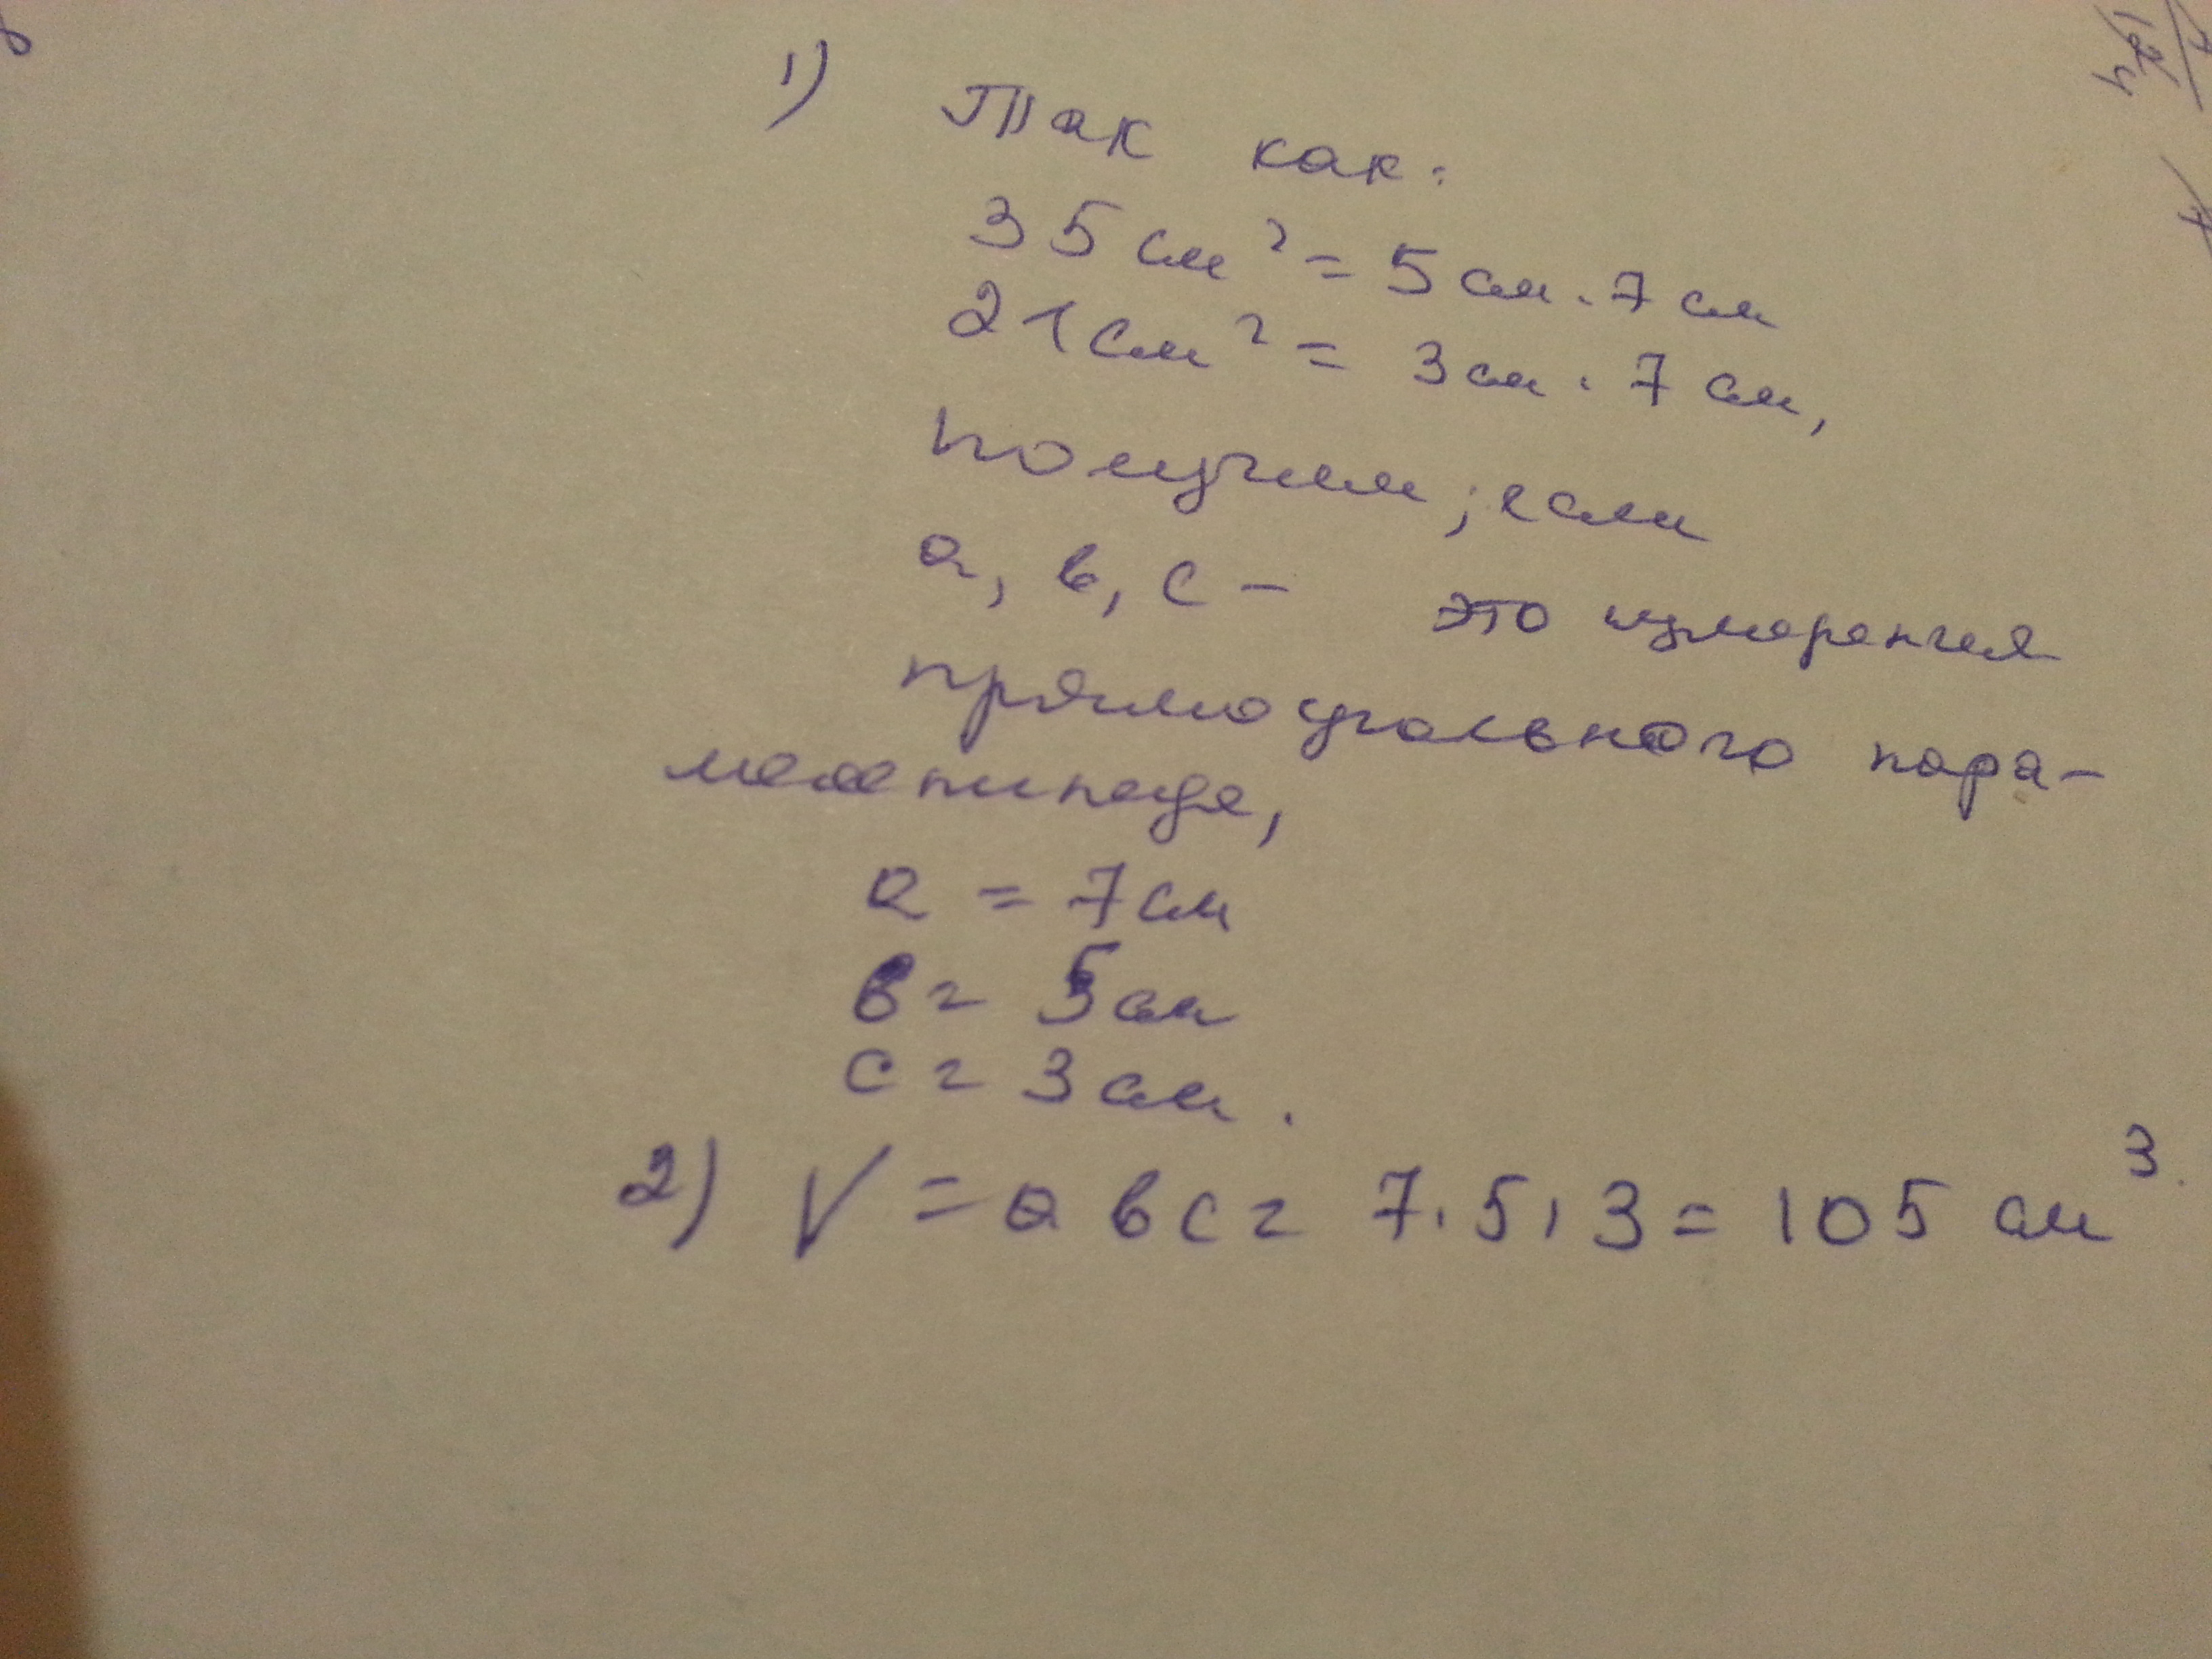 1) Так как:
35 см² = 5 см · 7 см
21 см² = 3 см · 7 см,
получим, если
а, в, с – это измерения
прямоугольного пара-
ллепипеда,
а = 7 см
в = 5 см
с = 3 см.
2) V = авс = 7 · 5 · 3 = 105 см³.